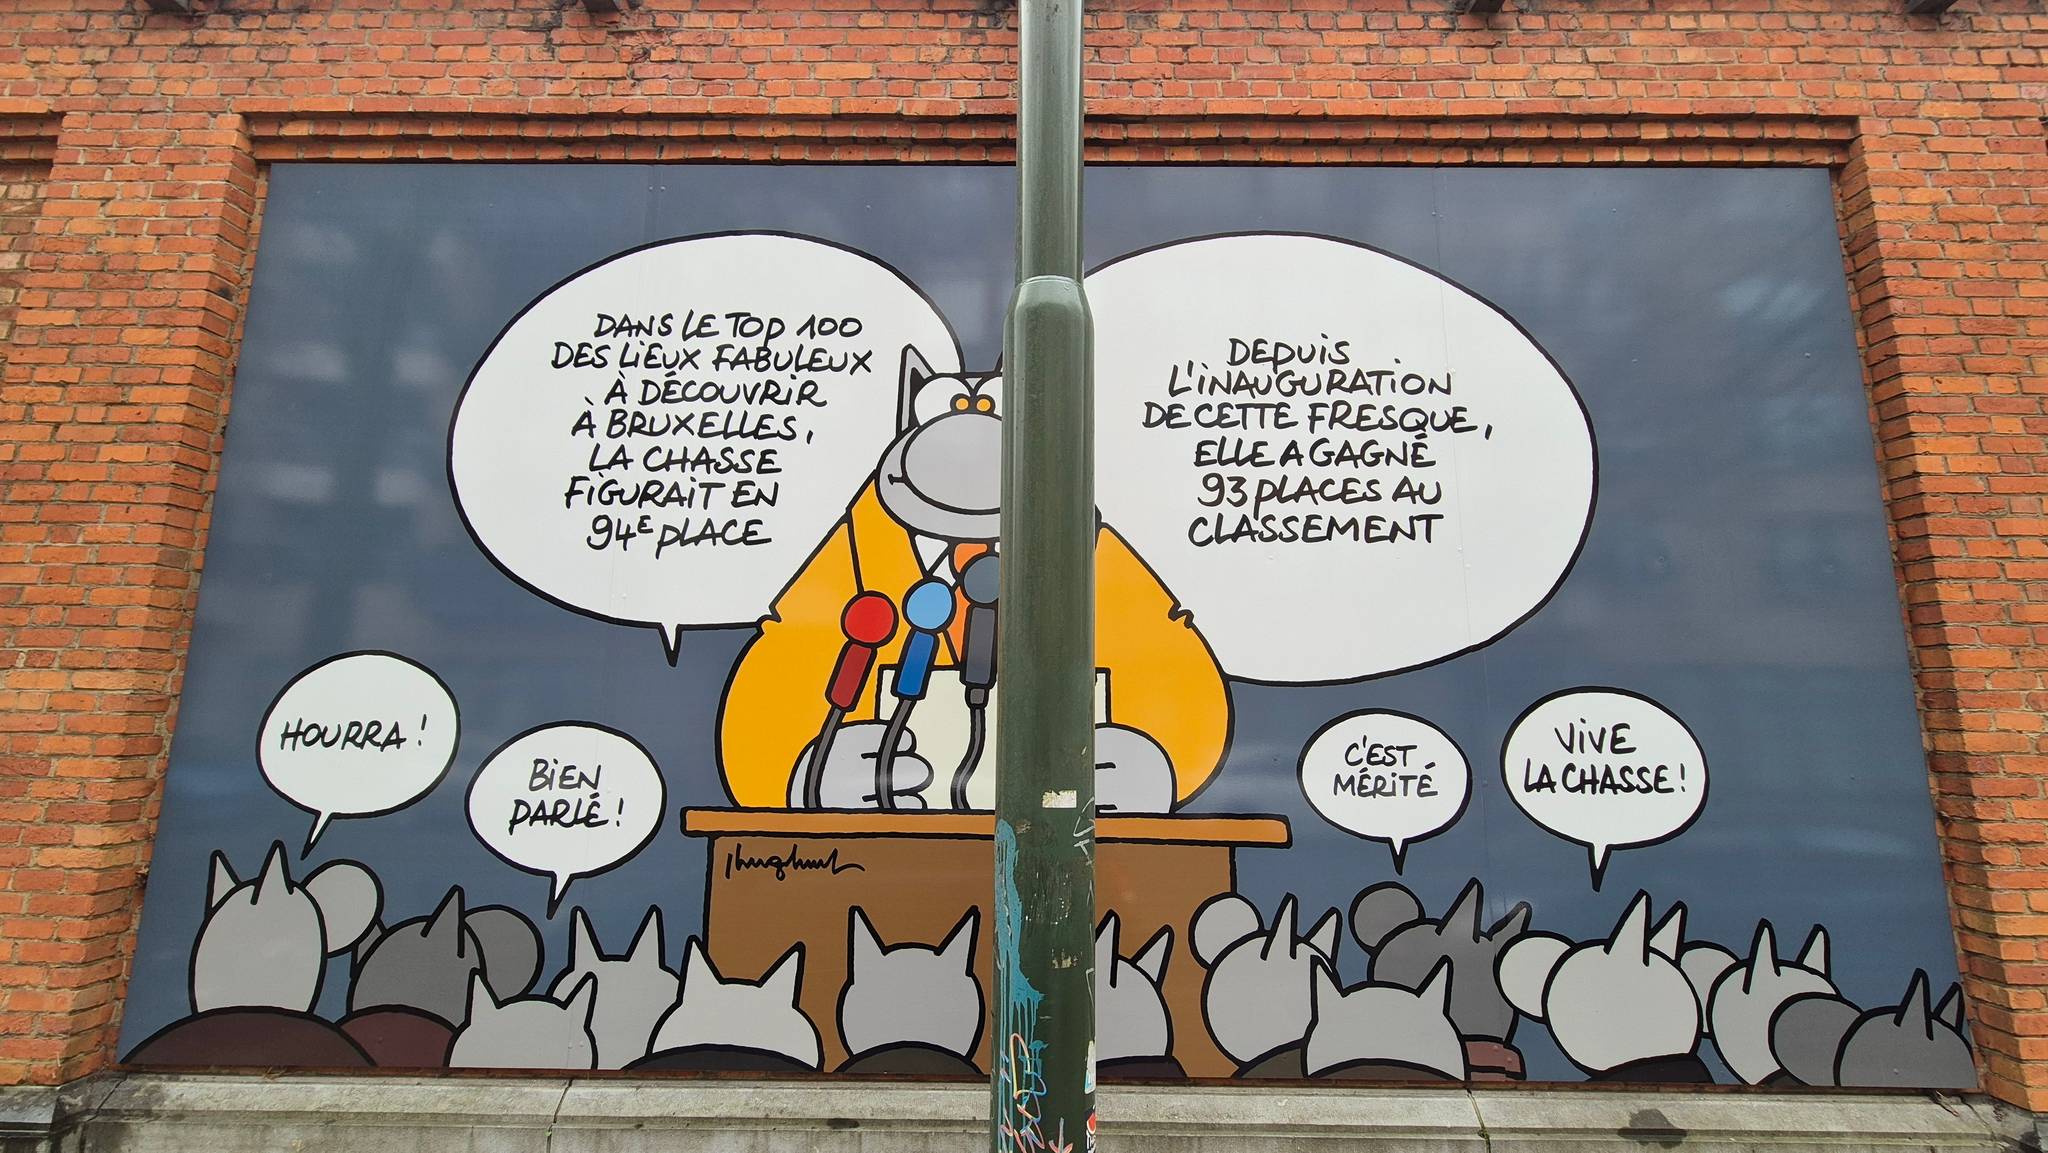 DANS LE TOP 100
DES LIEUX FABULEUX
À DÉCOUVRIR
À BRUXELLES,
LA CHASSE
FIGURAIT EN
94E PLACE
DEPUIS
L'INAUGURATION
DE CETTE FRESQUE,
ELLE A GAGNÉ
93 PLACES AU
CLASSEMENT
HOURRA !
BIEN
PARLÉ !
C'EST
MÉRITÉ
VIVE
LA CHASSE !